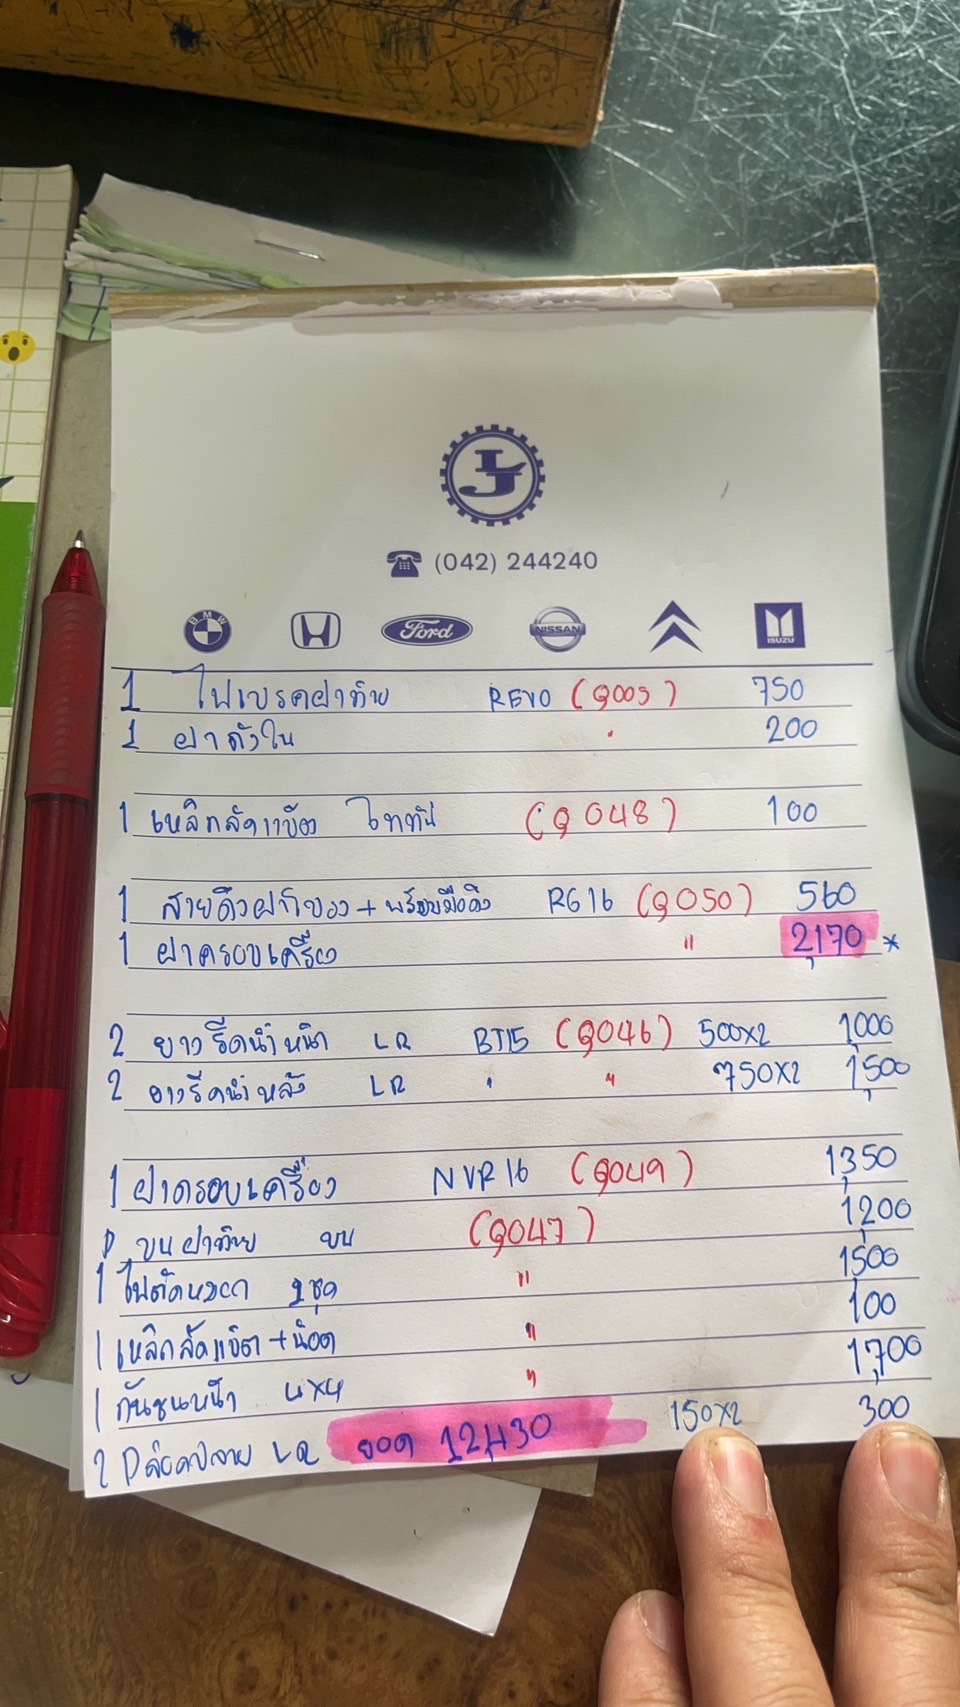 LJ
(042) 244240
BMW Ford NISSAN ISUZU
1 ไฟเบรคฝาท้าย REVO (Q005) 750
1 ฝาถังใน " 200
1 เหล็กลัดแข้ง ไททัน (Q048) 100
1 สายดึงฝาโขง + พร้อมมือดึง RG16 (Q050) 560
1 ฝาครอบเครื่อง " 2,170 *
2 ยางรีดน้ำหน้า LR BT15 (Q046) 500x2 1,000
2 ยางรีดน้ำหลัง LR " " 750x2 1,500
1 ฝาครอบเครื่อง NVR16 (Q049) 1,350
ขนฝาท้าย บน (Q047) 1,200
1 ไฟตัดหมอก 1ชุด " 1,500
1 เหล็กลัดแข้ง+น๊อต " 100
1 กันชนหน้า 4x4 " 1,700
2 LR ยอด 12,430 150x2 300